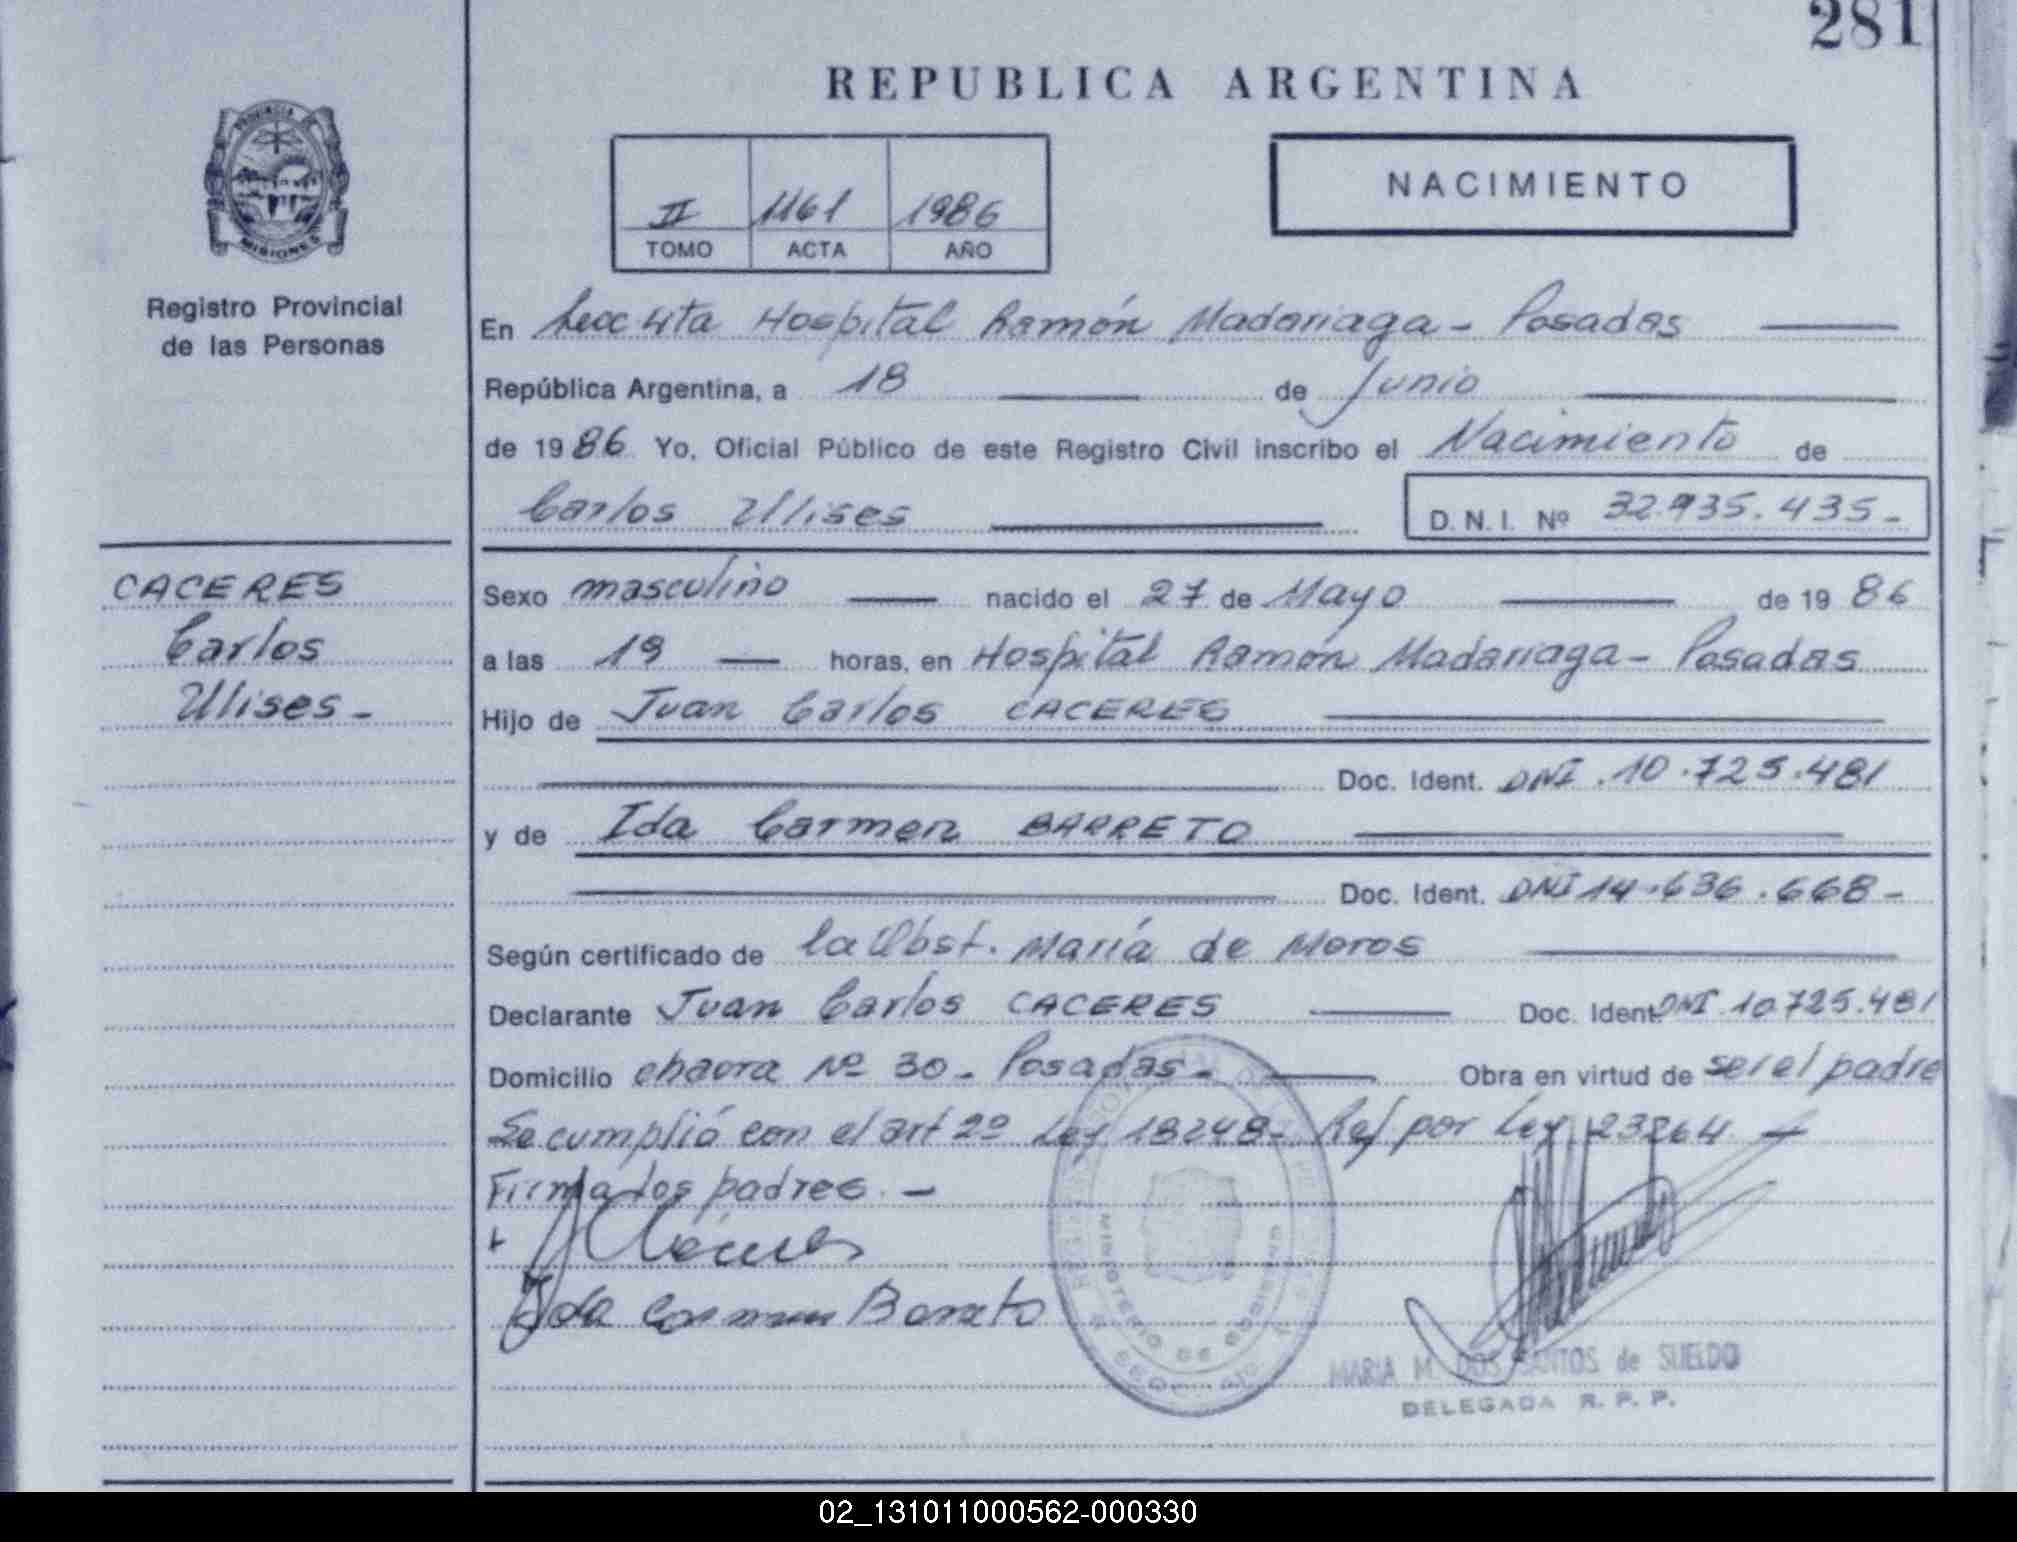 281
REPUBLICA ARGENTINA
PROVINCIA
MISIONES
Registro Provincial
de las Personas
II 1161 1986
TOMO ACTA AÑO
NACIMIENTO
En Secc 4ta Hospital Ramón Madariaga - Posadas
República Argentina, a 18 de Junio
de 1986 Yo, Oficial Público de este Registro Civil inscribo el Nacimiento de
Carlos Ulises D.N.I. Nº 32.935.435-
CACERES
Carlos
Ulises-
Sexo masculino nacido el 27 de Mayo de 1986
a las 19 horas, en Hospital Ramón Madariaga - Posadas
Hijo de Juan Carlos CACERES
Doc. Ident. DNI. 10.725.481
y de Ida Carmen BARRETO
Doc. Ident. DNI 14.636.668-
Según certificado de la Obst. María de Moros
Declarante Juan Carlos CACERES Doc. Ident. DNI 10.725.481
Domicilio chacra Nº 30 - Posadas - Obra en virtud de ser el padre
Se cumplió con el art 2º Ley 18248- Ref por Ley 23264
Firma los padres. -
Ida Carmen Barreto
MINISTERIO DE GOBIERNO
MARIA M. DOS SANTOS de SUELDO
DELEGADA R. P. P.
02_131011000562-000330